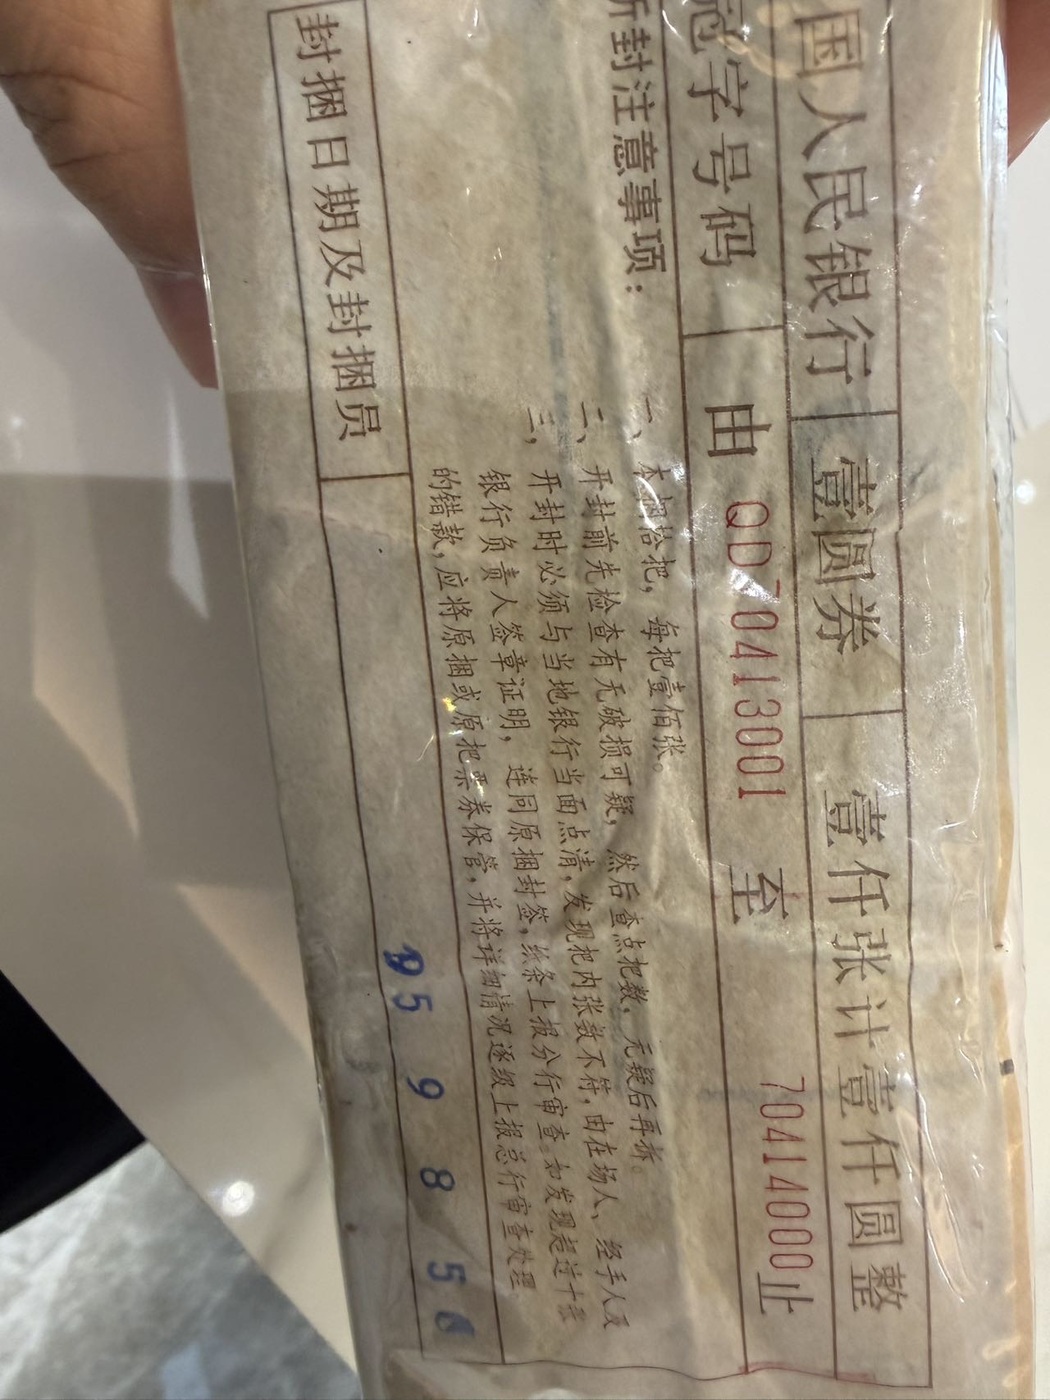 国人民银行 壹圆券 壹仟张计壹仟圆整
冠字号码 由 QD70413001 至 70414000止
拆封注意事项：
一、本捆拾把，每把壹佰张。
二、开封前先检查有无破损可疑，然后查点把数，无疑后再拆。
三，开封时必须与当地银行当面点清，发现把内张数不符，由在场人、经手人及
银行负责人签章证明，连同原捆封签，纸条上报分行审查。如发现超过十张
的错款，应将原捆或原把票券保管，并将详细情况逐级上报总行审查处理
封捆日期及封捆员
95 9 8 5